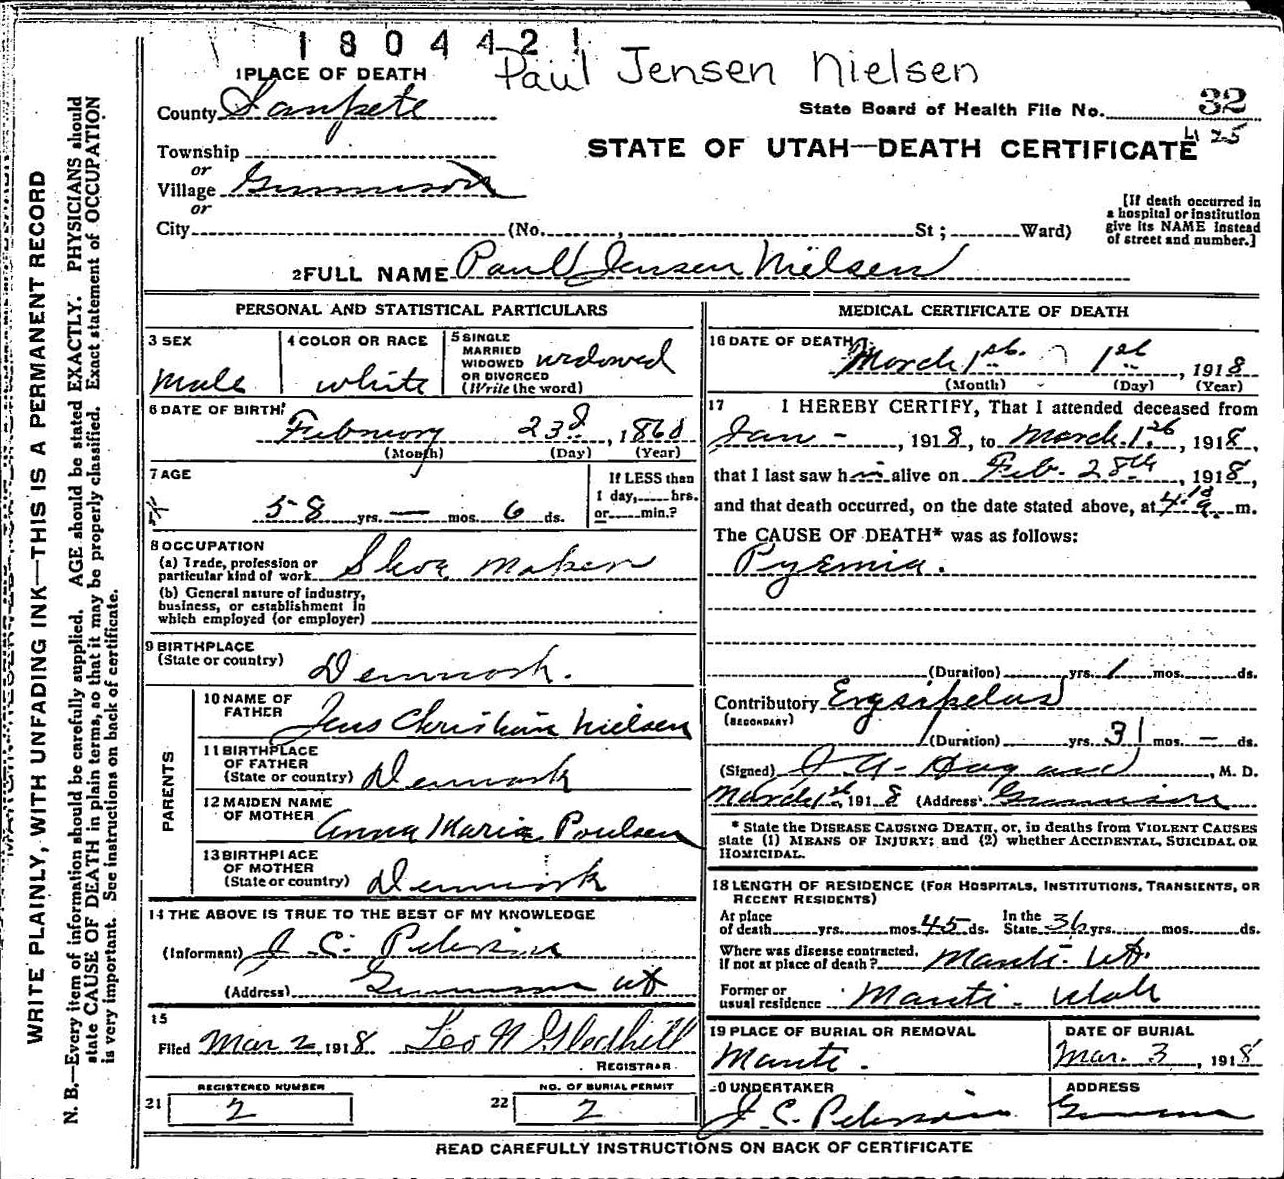 1804421
Paul Jensen Nielsen
1 PLACE OF DEATH
County Sanpete
State Board of Health File No. 32
425
Township
or
STATE OF UTAH—DEATH CERTIFICATE
Village Gunnison
or
City (No. , St ; Ward)
[If death occurred in
a hospital or institution
give its NAME instead
of street and number.]
2 FULL NAME Paul Jensen Nielsen
PERSONAL AND STATISTICAL PARTICULARS
3 SEX
Male
4 COLOR OR RACE
white
5 SINGLE
MARRIED
WIDOWED
OR DIVORCED
(Write the word)
widowed
6 DATE OF BIRTH
February 23d, 1860
(Month) (Day) (Year)
7 AGE
58 yrs. — mos. 6 ds.
If LESS than
1 day, hrs.
or min.?
8 OCCUPATION
(a) Trade, profession or
particular kind of work Shoe maker
(b) General nature of industry,
business, or establishment in
which employed (or employer)
9 BIRTHPLACE
(State or country) Denmark.
PARENTS
10 NAME OF
FATHER Jens Christian Nielsen
11 BIRTHPLACE
OF FATHER
(State or country) Denmark
12 MAIDEN NAME
OF MOTHER Anna Maria Poulsen
13 BIRTHPLACE
OF MOTHER
(State or country) Denmark
14 THE ABOVE IS TRUE TO THE BEST OF MY KNOWLEDGE
(Informant) J. C. Peterson
(Address) Gunnison Ut
15
Filed Mar 2, 1918 Leo N. Gledhill
REGISTRAR
REGISTERED NUMBER
21 2
NO. OF BURIAL PERMIT
22 2
MEDICAL CERTIFICATE OF DEATH
16 DATE OF DEATH
March 1st. 1st, 1918
(Month) (Day) (Year)
17 I HEREBY CERTIFY, That I attended deceased from
Jan -, 1918, to March 1st, 1918,
that I last saw him alive on Feb. 28th, 1918,
and that death occurred, on the date stated above, at m.
The CAUSE OF DEATH* was as follows:
Pyemia.
(Duration) yrs. 1 mos. ds.
Contributory Erysipelas
(SECONDARY)
(Duration) yrs. 31 mos. — ds.
(Signed) , M. D.
March 1st, 1918 (Address) Gunnison
* State the DISEASE CAUSING DEATH, or, in deaths from VIOLENT CAUSES
state (1) MEANS OF INJURY; and (2) whether ACCIDENTAL, SUICIDAL OR
HOMICIDAL.
18 LENGTH OF RESIDENCE (FOR HOSPITALS, INSTITUTIONS, TRANSIENTS, OR
RECENT RESIDENTS)
At place
of death yrs. mos. 45 ds. In the
State 36 yrs. mos. ds.
Where was disease contracted,
if not at place of death? Manti - Ut.
Former or
usual residence Manti - Utah
19 PLACE OF BURIAL OR REMOVAL
Manti.
DATE OF BURIAL
Mar. 3, 1918
20 UNDERTAKER
J. C. Peterson
ADDRESS
Gunnison
READ CAREFULLY INSTRUCTIONS ON BACK OF CERTIFICATE
WRITE PLAINLY, WITH UNFADING INK—THIS IS A PERMANENT RECORD
N. B.—Every item of information should be carefully supplied. AGE should be stated EXACTLY. PHYSICIANS should
state CAUSE OF DEATH in plain terms, so that it may be properly classified. Exact statement of OCCUPATION
is very important. See instructions on back of certificate.